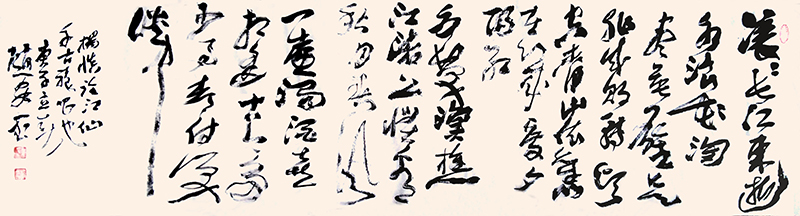 滚滚长江东逝
水浪花淘
尽英雄是
非成败转头
空青山依旧
在几度夕
阳红
白发渔樵
江渚上惯看
秋月春风
一壶浊酒喜
相逢古今多
少事都付笑
谈中
杨慎临江仙
千古唱也
庚子立